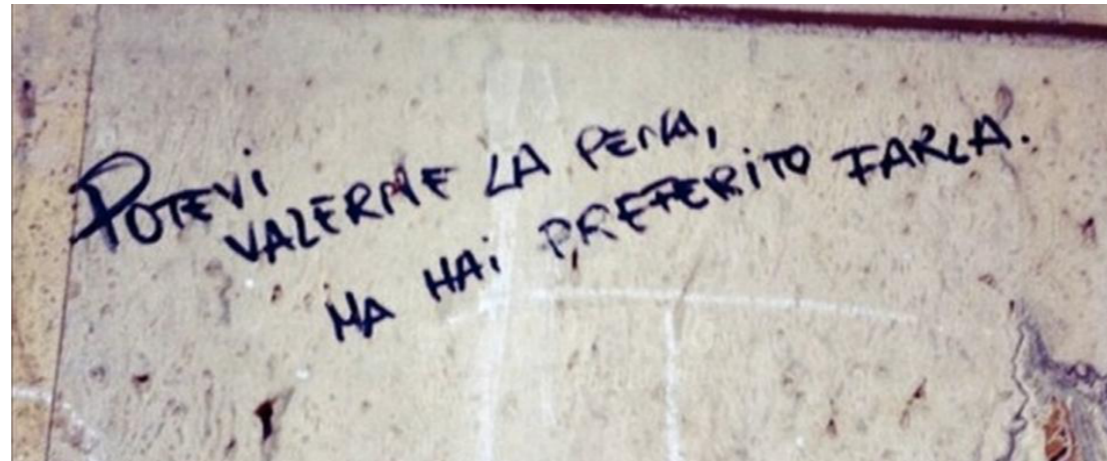 POTEVI
VALERNE LA PENA,
MA HAI PREFERITO FARLA.